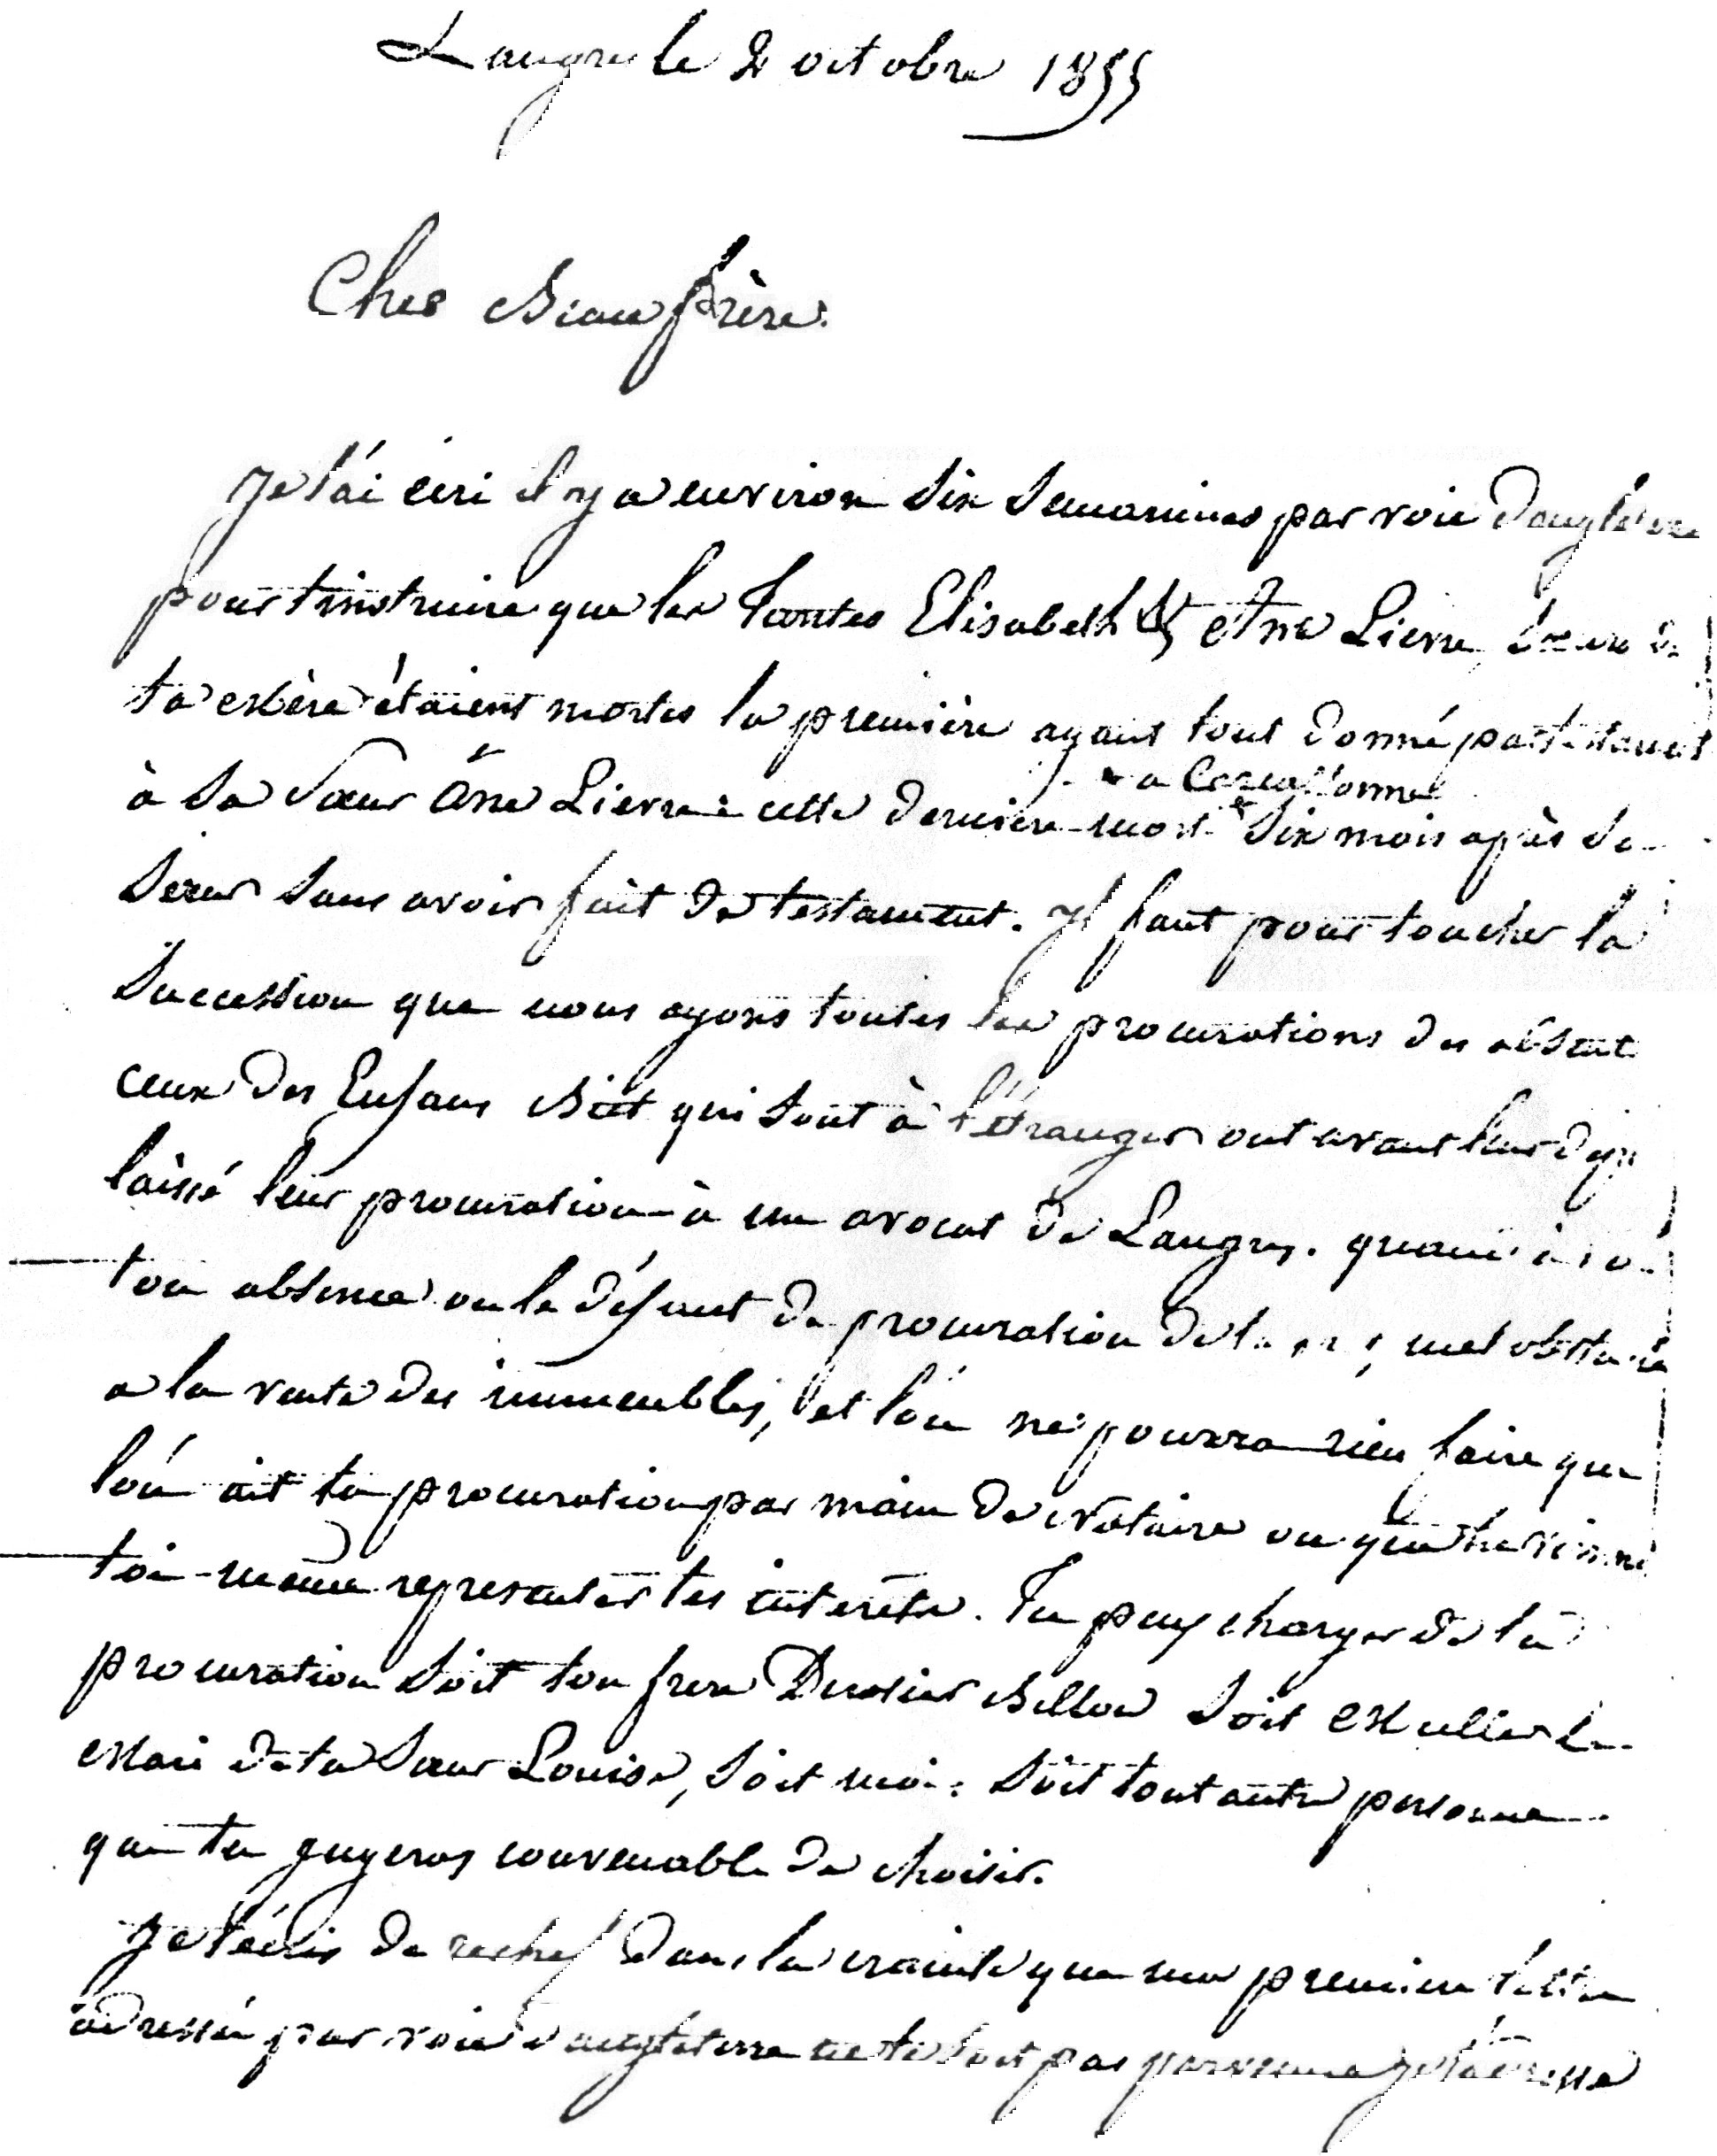 Langres le 2 octobre 1855
Cher Beau frère.
Je t'ai ecri il y a environ six semaines par voie d'angleterre
pour tinstruire que les Tantes Elisabeth & Ane Lierre, sœurs de
ta Mère étaient mortes la première ayant tout donné par testament
a Coiffonnel
à sa Sœur Âne Lierre cette dernière mort six mois après sa
sœur sans avoir fait de testament. Il faut pour toucher la
succession que nous ayons toutes les procurations des absent
ceux des Enfans Biet qui sont à l'étranger ont avant leur
laissé leur procuration à un avocat de Langres. quant à toi
ton absence ou le défaut de procuration de ta met obstacle
a la vente des immeubles, et l'on ne pourra rien faire que
l'on ait ta procuration par main de Notaire ou que tu vienne
toi-même representer tes interêts. Tu peux charger de ta
procuration soit ton frere Durosier Billow soit Muller le
Mari de ta Sœur Louise, soit moi soit tout autre personne
que tu jugeras convenable de choisir.
Je t'écris de rechef dans la crainte que ma premiere lettre
adressée par voie d'angleterre ne te soit pas parvenue je t'adresse